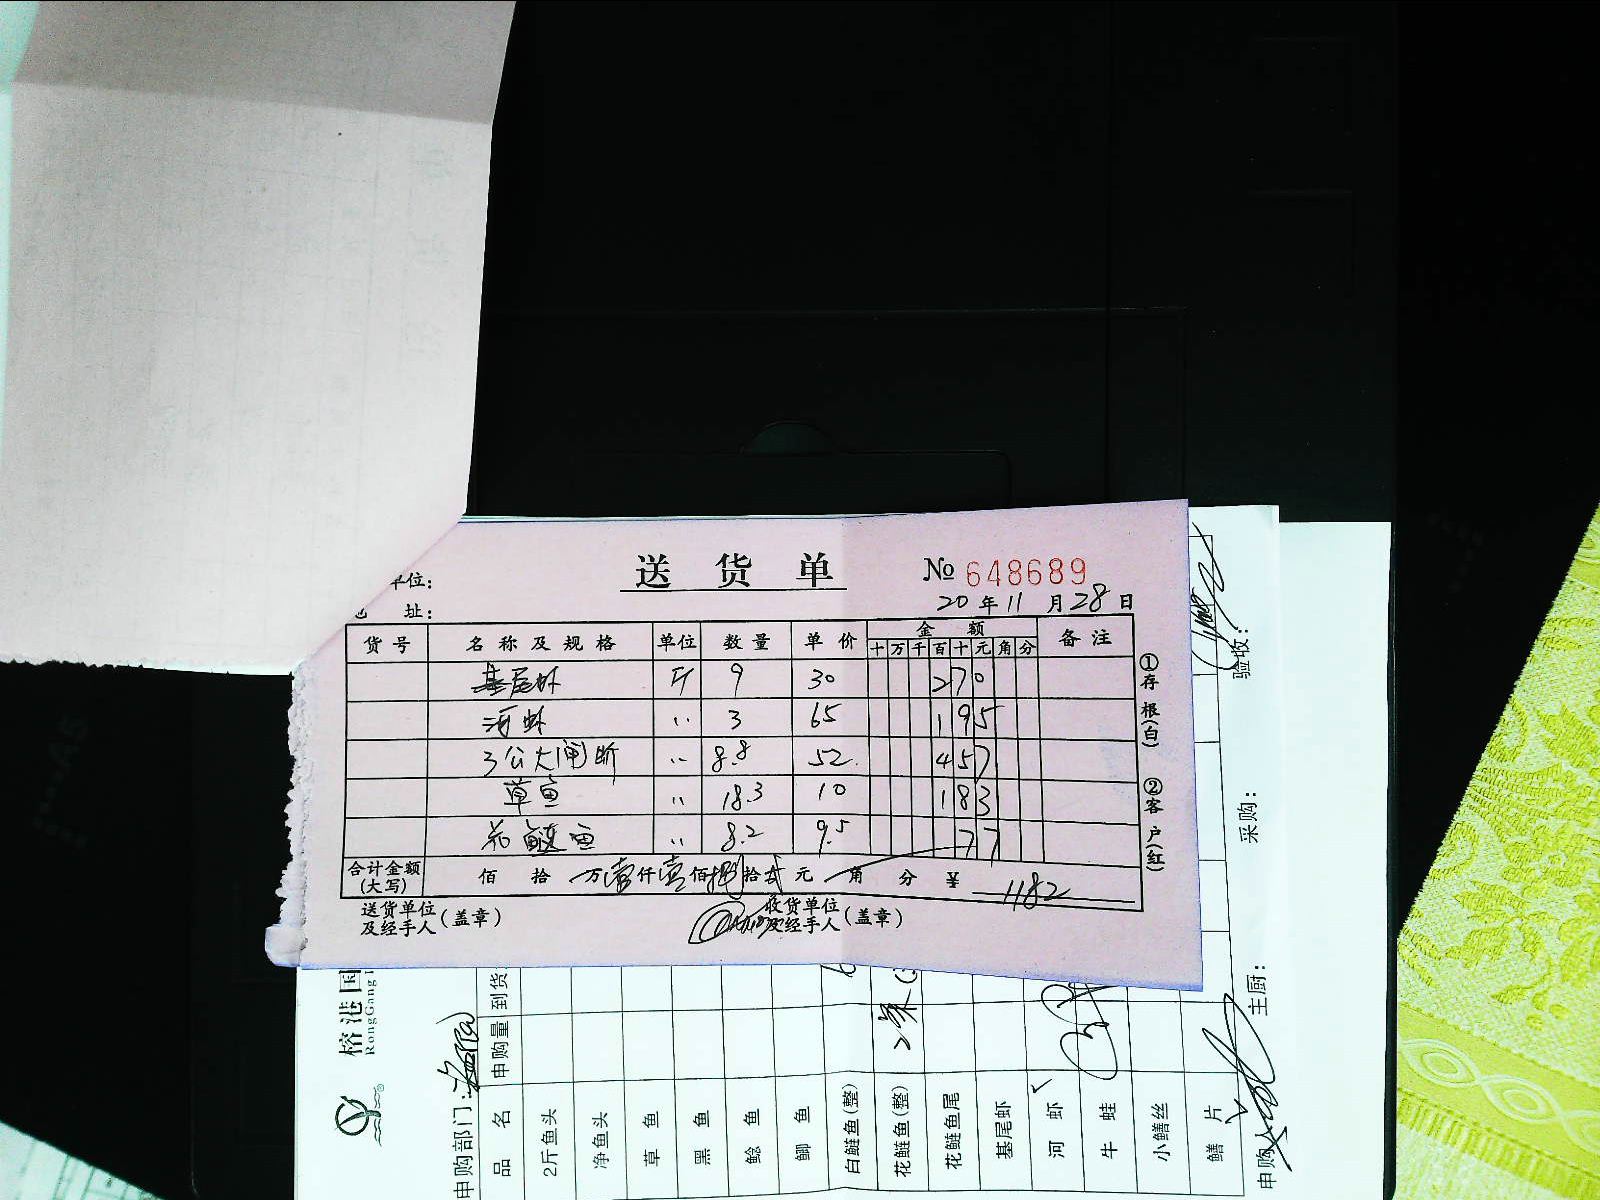 送货单 № 648689
单位:
址: 20年11月28日
货号 名称及规格 单位 数量 单价 金额 备注
十 万 千 百 十 元 角 分
基尾虾 斤 9 30 270
河虾 〃 3 65 195
3公大闸 〃 8.8 52. 457
草鱼 〃 18.3 10 183
花鲢鱼 〃 8.2 9.5 77
合计金额(大写) 佰 拾 万壹仟壹佰捌拾贰元 角 分 ¥ 1182
送货单位及经手人(盖章) 收货单位及经手人(盖章)
①存根(白) ②客户(红)
榕港国
RongGang
申购部门:
品名 申购量 到货
2斤鱼头
净鱼头
草鱼
黑鱼
鲶鱼
鲫鱼
白鲢鱼(整)
花鲢鱼(整) 2条
花鲢鱼尾
基尾虾
河虾 ✓
牛蛙
小鳝丝
鳝片 ✓
申购人: 主厨: 采购: 验收: